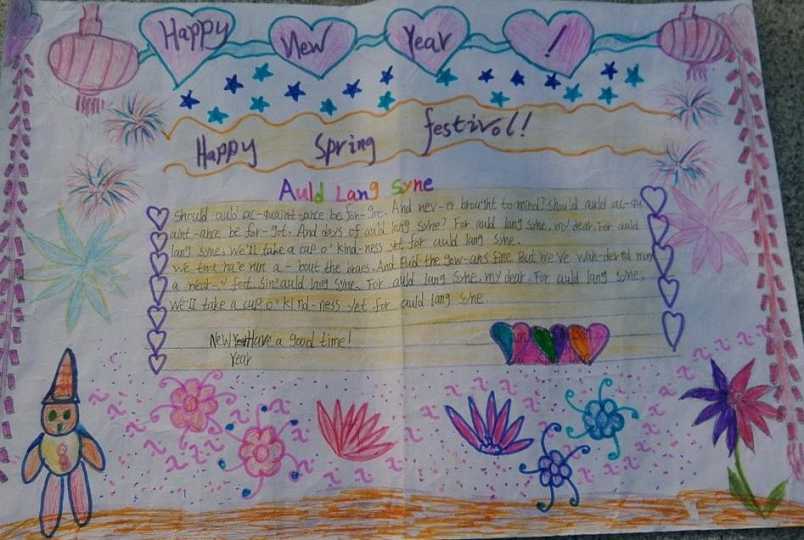 Happy New Year !
Happy Spring festivol!
Auld Lang Syne
should auld ac-quaint-ance be for-got. And nev-er brought to mind? should auld ac-qu
aint-ance be for-got. And days of auld lang syne? For auld lang syne, my dear. For auld
lang syne. We'll take a cup o' kind-ness yet for auld lang syne.
We twa ha'e run a-bout the braes. And the gow-ans fine But we've wan-dered
a wear-y foot Sin' auld lang syne. For auld lang syne, my dear. For auld lang syne.
We'll take a cup o' kind-ness yet for auld lang syne
New Have a good time!
Year